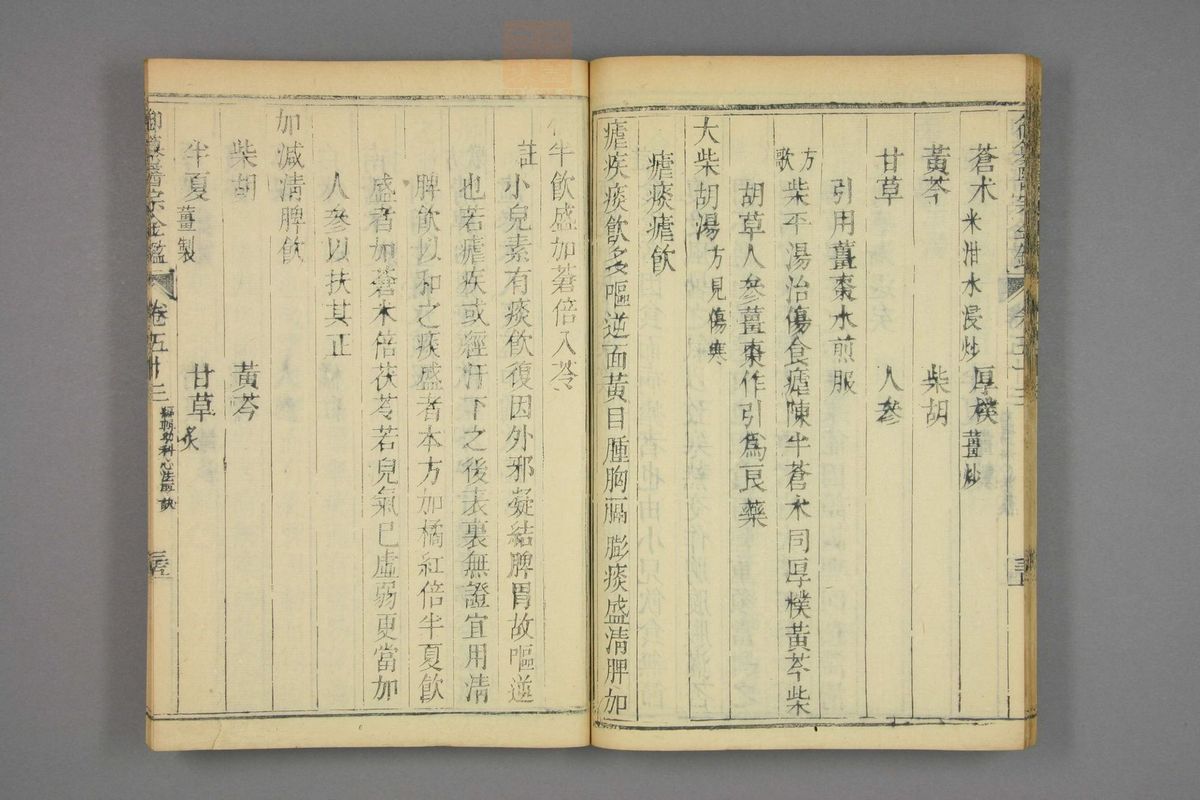 蒼朮米泔水浸炒 厚樸薑炒
黃芩 柴胡
甘草 人參
引用薑棗水煎服
方歌 柴平湯治傷食瘧陳半蒼朮同厚樸黃芩柴
胡草人參薑棗作引為良藥
大柴胡湯方見傷寒
瘧痰瘧飲
瘧疾痰飲多嘔逆面黃目腫胸膈膨痰盛清脾加
半飲盛加蒼倍入苓
註 小兒素有痰飲復因外邪凝結脾胃故嘔逆
也若瘧疾或經汗下之後表裏無證宜用清
脾飲以和之痰盛者本方加橘紅倍半夏飲
盛者加蒼朮倍茯苓若兒氣已虛弱更當加
人參以扶其正
加減清脾飲
柴胡 黃芩
半夏薑製 甘草炙
御纂醫宗金鑑 卷五十三 編輯幼科心法要訣